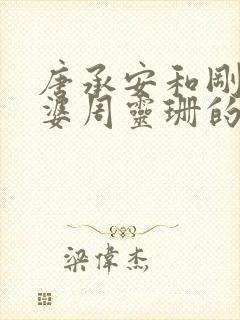 唐承安和剛
婆周靈珊的
梁偉杰